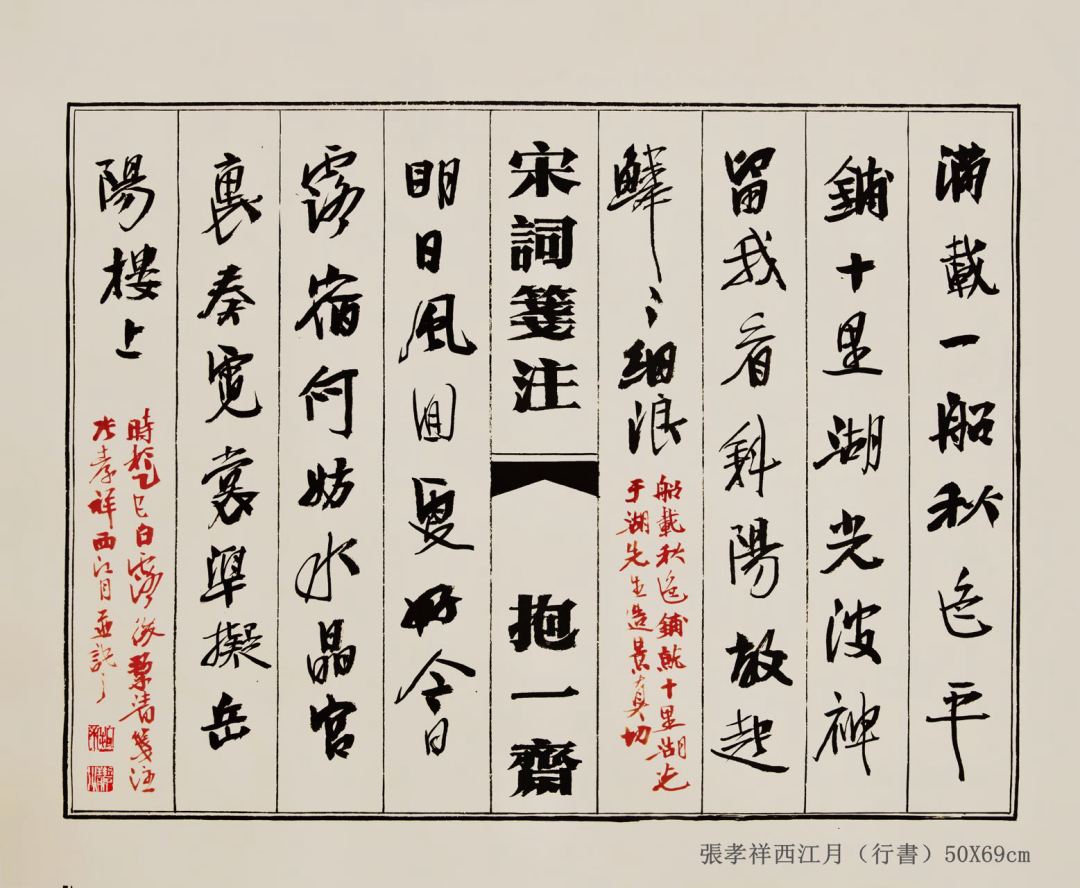 滿載一船秋色平
鋪十里湖光波神
留我看斜陽放起
鱗〻細浪
船載秋色鋪就十里湖光
于湖先生造景真切
宋詞箋注
抱一齋
明日風回更好今日
露宿何妨水晶宮
裏奏霓裳準擬岳
陽樓上
時於乙巳白露後清箋注
張孝祥西江月並記之
張孝祥西江月（行書）50X69cm